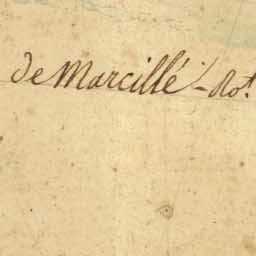 de Marcillé - Rot.